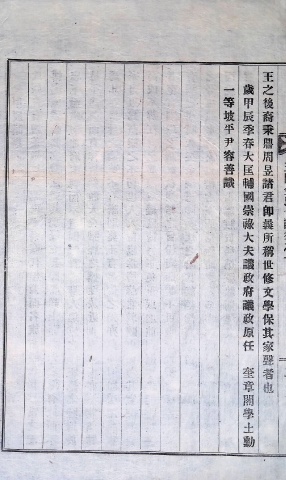 王之後裔秉曆周昱諸君卽義所稱世修文學保其家聲者也
歲甲辰季春大匡輔國崇祿大夫議政府議政原任 奎章閣學士勳
一等坡平尹容善識